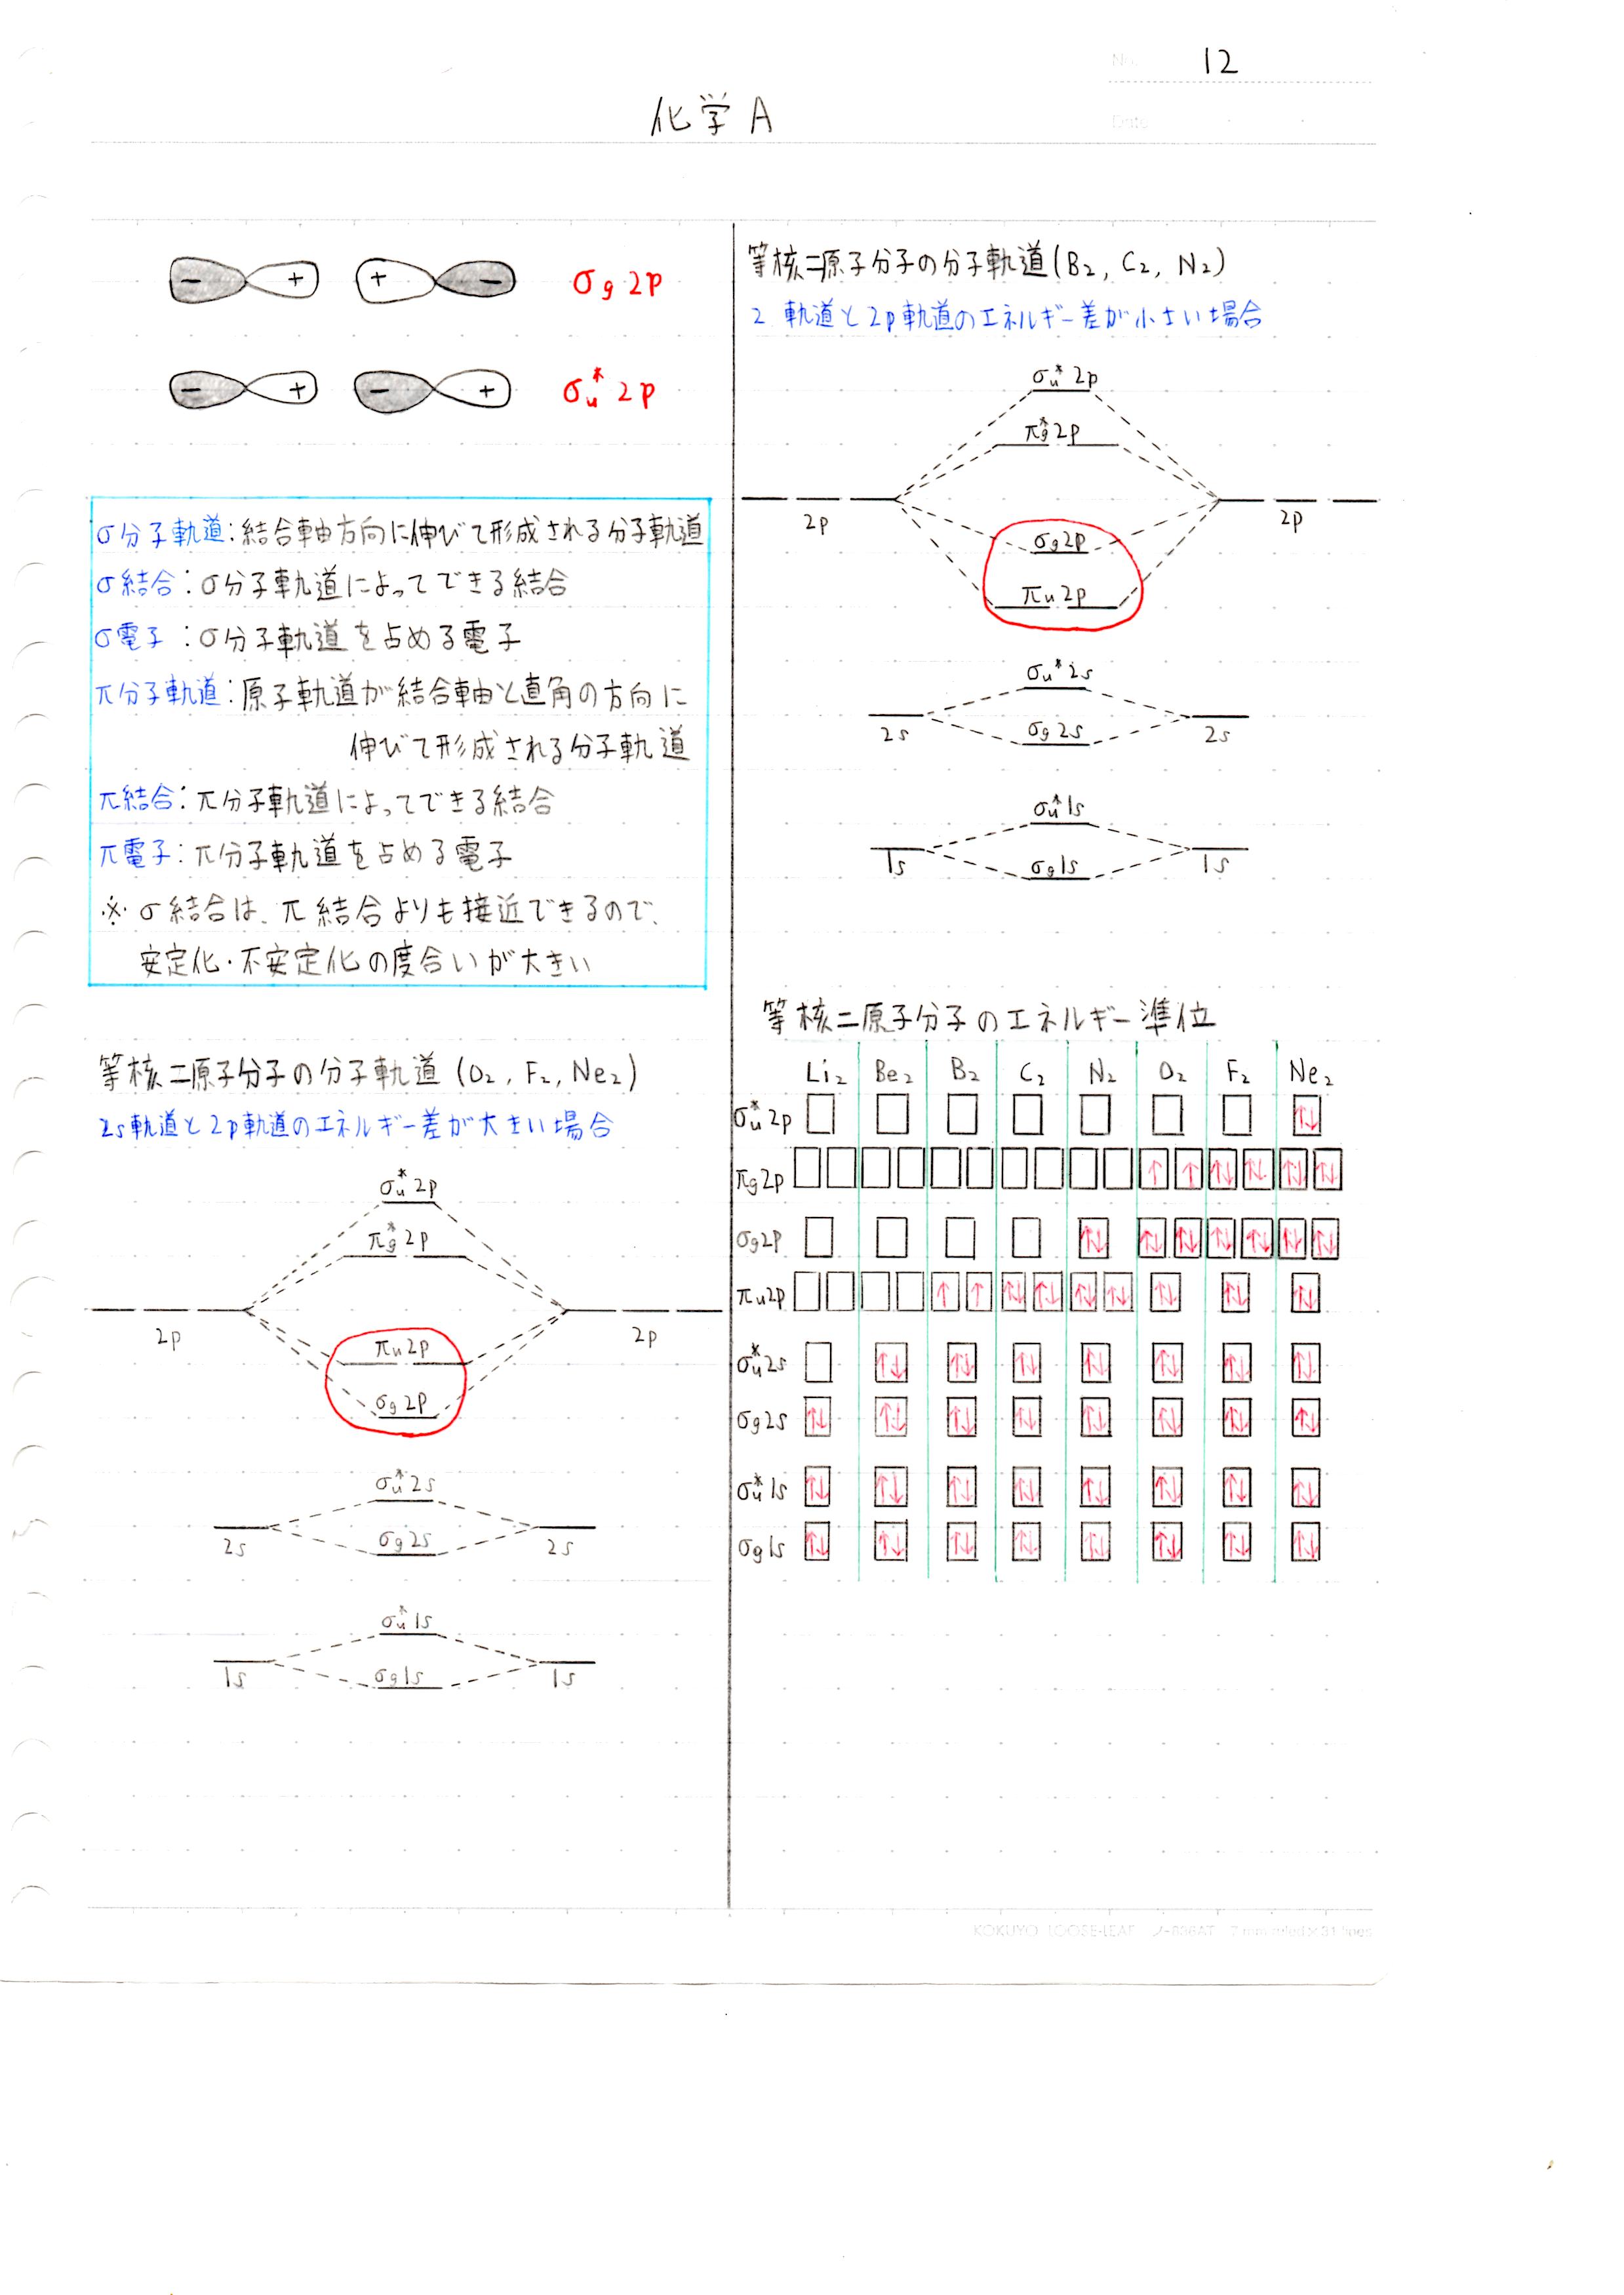 No. 12
Date
化学A
- + + - σg 2p
- + - + σu* 2p
σ分子軌道:結合軸方向に伸びて形成される分子軌道
σ結合:σ分子軌道によってできる結合
σ電子:σ分子軌道を占める電子
π分子軌道:原子軌道が結合軸と直角の方向に
伸びて形成される分子軌道
π結合:π分子軌道によってできる結合
π電子:π分子軌道を占める電子
※σ結合は、π結合よりも接近できるので、
安定化・不安定化の度合いが大きい
等核二原子分子の分子軌道(O₂, F₂, Ne₂)
2s軌道と2p軌道のエネルギー差が大きい場合
σu* 2p
πg* 2p
2p 2p
πu 2p
σg 2p
σu* 2s
2s σg 2s 2s
σu* 1s
1s σg 1s 1s
等核二原子分子の分子軌道(B₂, C₂, N₂)
2 軌道と2p軌道のエネルギー差が小さい場合
σu* 2p
πg* 2p
2p 2p
σg 2p
πu 2p
σu* 2s
2s σg 2s 2s
σu* 1s
1s σg 1s 1s
等核二原子分子のエネルギー準位
Li₂ Be₂ B₂ C₂ N₂ O₂ F₂ Ne₂
σu* 2p ↑↓
πg 2p ↑ ↑ ↑↓ ↑↓ ↑↓ ↑↓
σg 2p ↑↓ ↑↓ ↑↓ ↑↓ ↑↓ ↑↓ ↑↓
πu 2p ↑ ↑ ↑↓ ↑↓ ↑↓ ↑↓ ↑↓ ↑↓ ↑↓
σu* 2s ↑↓ ↑↓ ↑↓ ↑↓ ↑↓ ↑↓ ↑↓
σg 2s ↑↓ ↑↓ ↑↓ ↑↓ ↑↓ ↑↓ ↑↓ ↑↓
σu* 1s ↑↓ ↑↓ ↑↓ ↑↓ ↑↓ ↑↓ ↑↓ ↑↓
σg 1s ↑↓ ↑↓ ↑↓ ↑↓ ↑↓ ↑↓ ↑↓ ↑↓
KOKUYO LOOSE-LEAF ノ-836AT 7 mm ruled × 31 lines